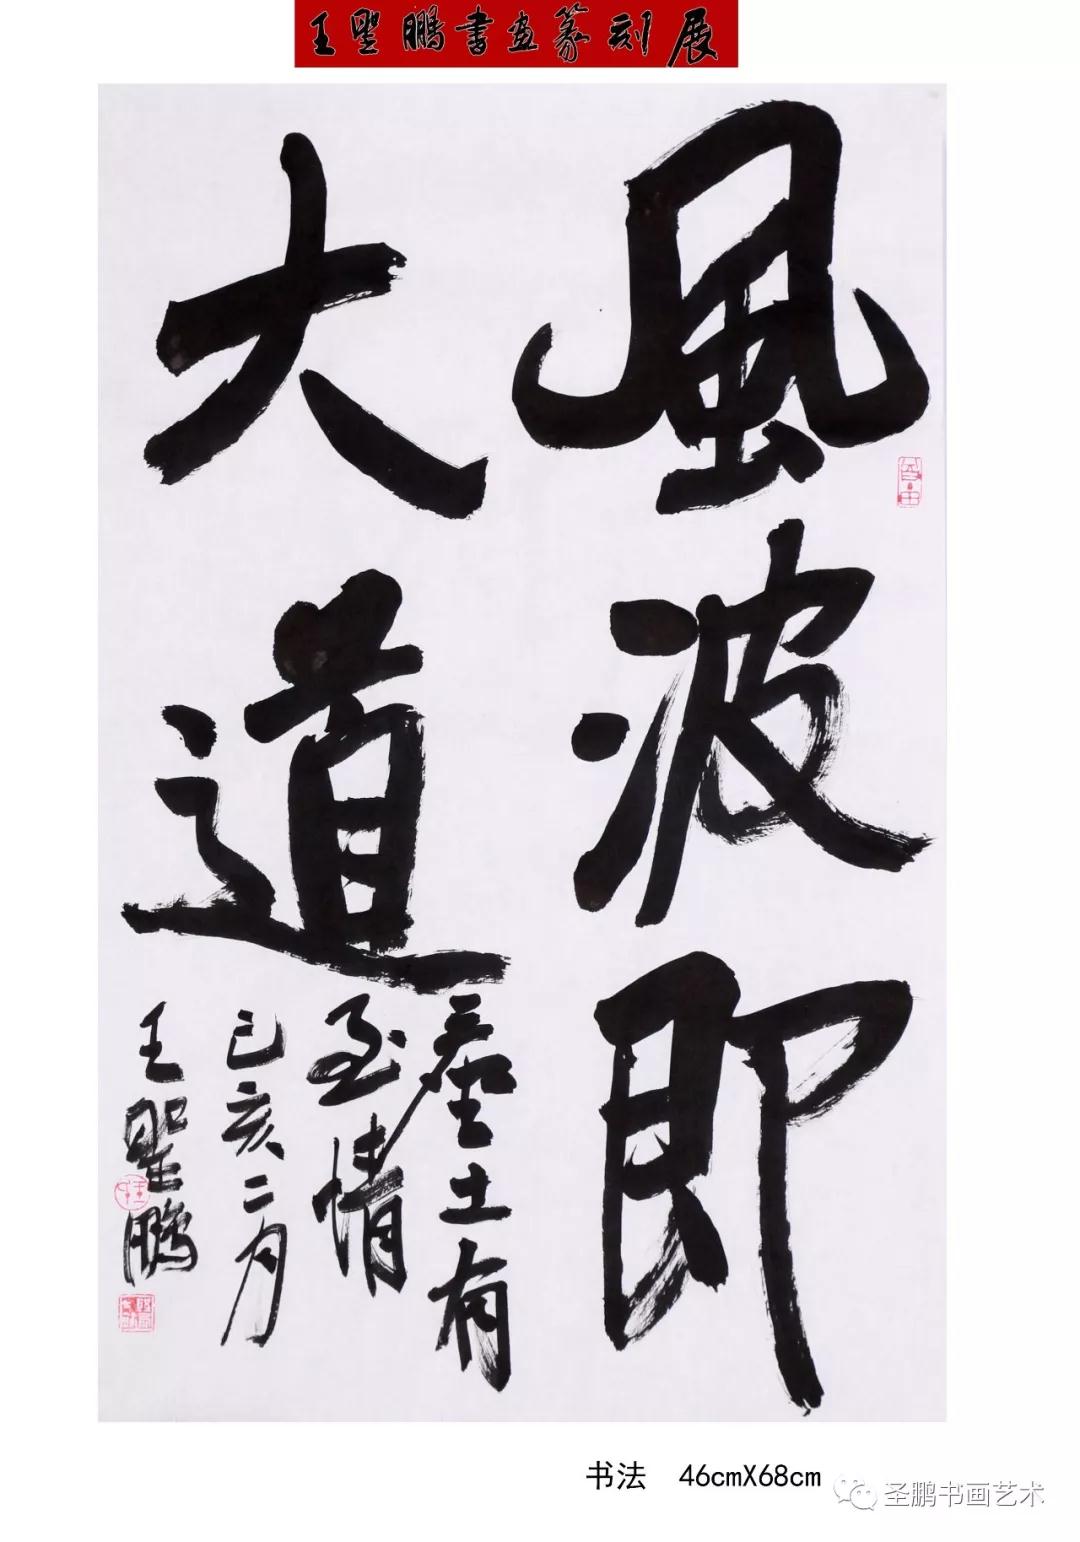 王聖鵬書画篆刻展
風波即
大道
塵土有
至情
己亥二月
王聖鵬
书法 46cmX68cm
圣鹏书画艺术